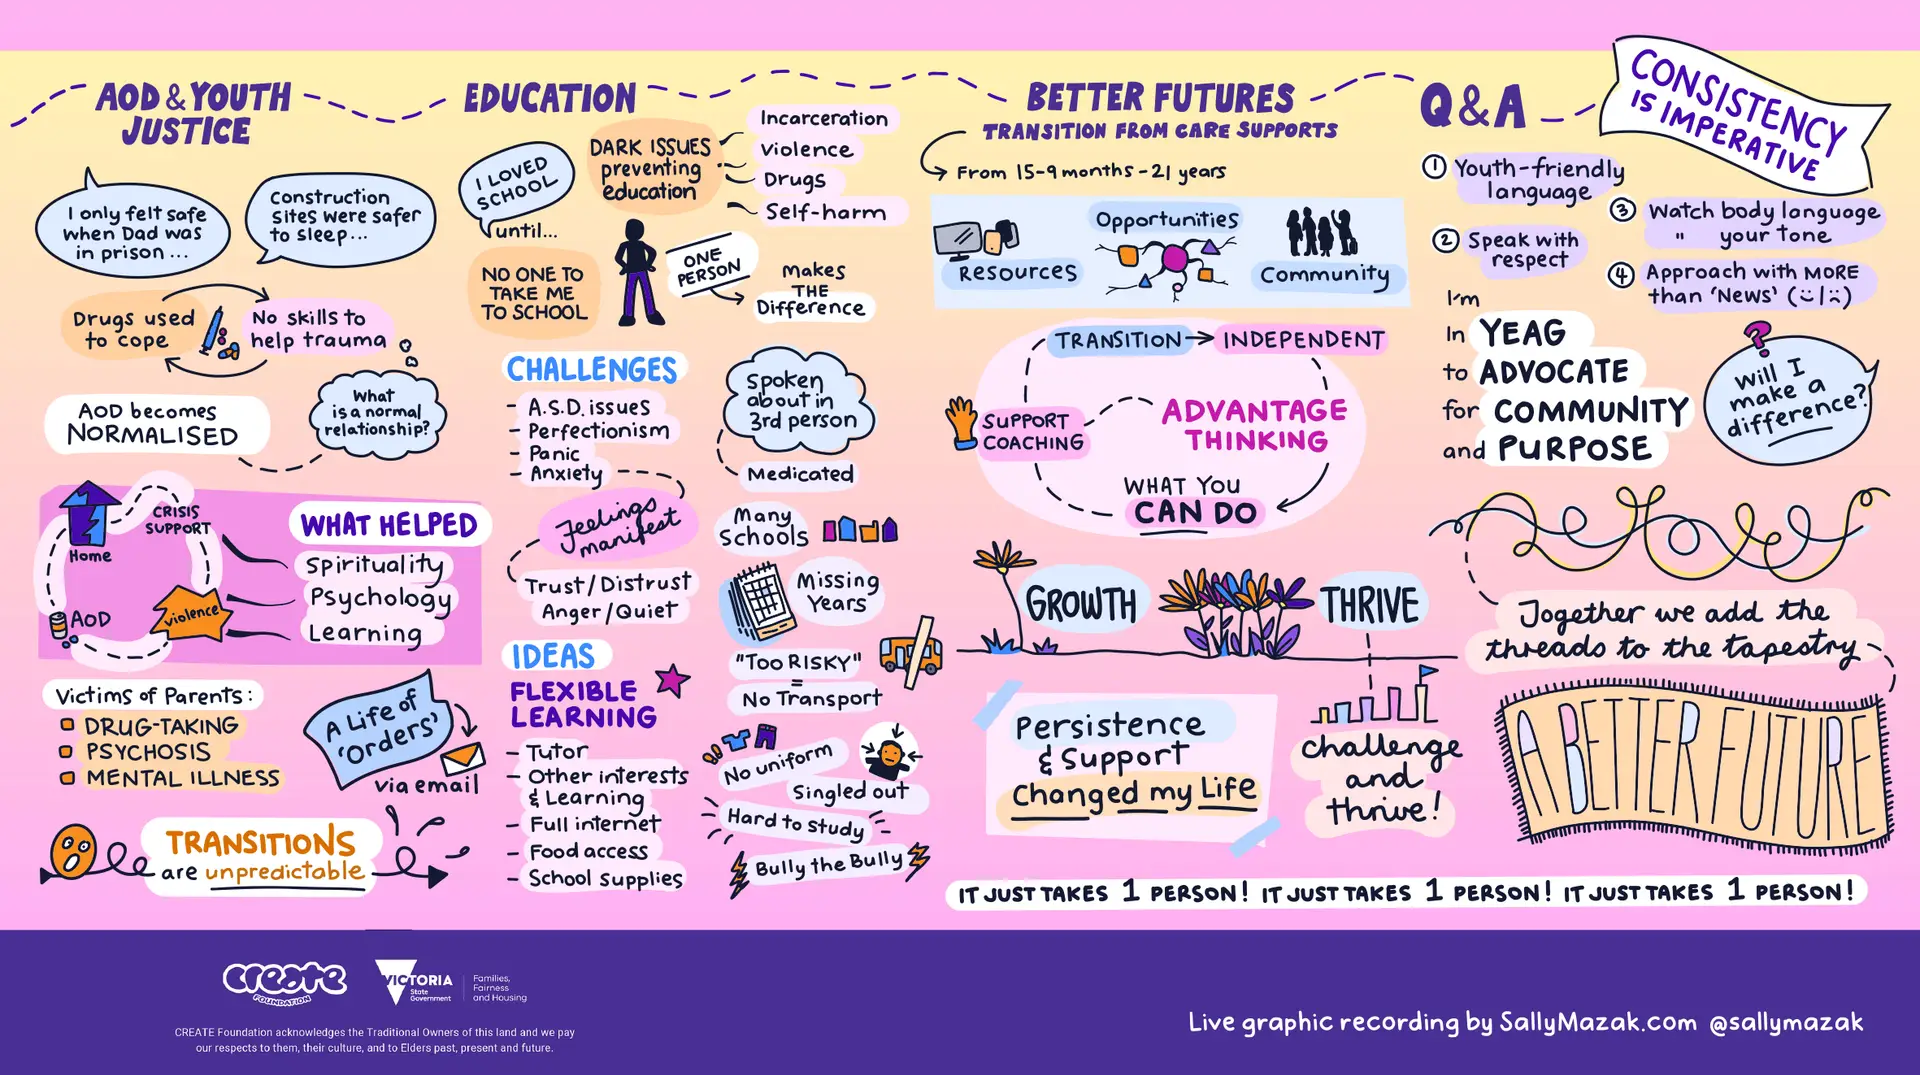 AOD & YOUTH
JUSTICE
I only felt safe
when Dad was
in prison ...
Construction
sites were safer
to sleep...
Drugs used
to cope
No skills to
help trauma
AOD becomes
NORMALISED
What
is a normal
relationship?
Home
CRISIS
SUPPORT
AOD
violence
WHAT HELPED
Spirituality
Psychology
Learning
Victims of Parents:
DRUG-TAKING
PSYCHOSIS
MENTAL ILLNESS
A Life of
'Orders'
via email
TRANSITIONS
are unpredictable
EDUCATION
I LOVED
SCHOOL
until...
NO ONE TO
TAKE ME
TO SCHOOL
DARK ISSUES
preventing
education
Incarceration
Violence
Drugs
Self-harm
ONE
PERSON
makes
THE
Difference
CHALLENGES
- A.S.D. issues
- Perfectionism
- Panic
- Anxiety
Feelings
manifest
Trust/Distrust
Anger/Quiet
IDEAS
FLEXIBLE
LEARNING
- Tutor
- Other interests
& Learning
- Full internet
- Food access
- School supplies
Spoken
about in
3rd person
Medicated
Many
Schools
Missing
Years
"TOO RISKY"
=
No Transport
No uniform
Singled out
Hard to study
Bully the Bully
BETTER FUTURES
TRANSITION FROM CARE SUPPORTS
From 15-9 months - 21 years
Resources
Opportunities
Community
TRANSITION → INDEPENDENT
SUPPORT
COACHING
ADVANTAGE
THINKING
WHAT YOU
CAN DO
GROWTH
THRIVE
Persistence
& Support
Changed my Life
Challenge
and
thrive!
Q & A
CONSISTENCY
IS IMPERATIVE
1 Youth-friendly
language
2 Speak with
respect
3 Watch body language
" your tone
4 Approach with MORE
than 'News' (☺|☹)
I'm
In YEAG
to ADVOCATE
for COMMUNITY
and PURPOSE
?
Will I
make a
difference?
Together we add the
threads to the tapestry
A BETTER FUTURE
IT JUST TAKES 1 PERSON! IT JUST TAKES 1 PERSON! IT JUST TAKES 1 PERSON!
create
FOUNDATION
VICTORIA
State
Government
Families,
Fairness
and Housing
CREATE Foundation acknowledges the Traditional Owners of this land and we pay
our respects to them, their culture, and to Elders past, present and future.
Live graphic recording by SallyMazak.com @sallymazak